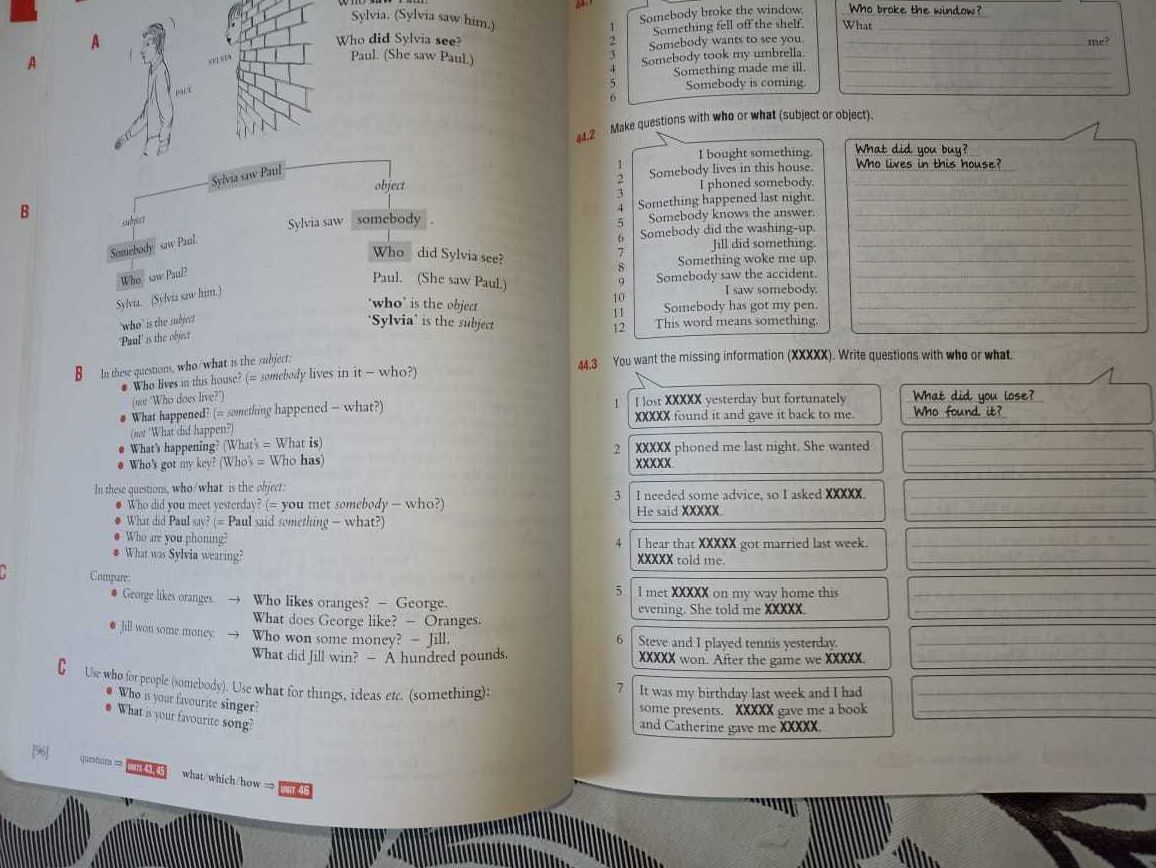 Sylvia. (Sylvia saw him.)
Who did Sylvia see?
Paul. (She saw Paul.)
A
A
SYLVIA
PAUL
B
Sylvia saw Paul
subject
object
Somebody saw Paul.
Sylvia saw somebody .
Who saw Paul?
Who did Sylvia see?
Sylvia. (Sylvia saw him.)
Paul. (She saw Paul.)
'who' is the subject
'Paul' is the object
'who' is the object
'Sylvia' is the subject
B In these questions, who/what is the subject:
• Who lives in this house? (= somebody lives in it – who?)
(not 'Who does live?')
• What happened? (= something happened – what?)
(not 'What did happen?)
• What's happening? (What's = What is)
• Who's got my key? (Who's = Who has)
In these questions, who/what is the object:
• Who did you meet yesterday? (= you met somebody – who?)
• What did Paul say? (= Paul said something – what?)
• Who are you phoning?
• What was Sylvia wearing?
C
Compare:
• George likes oranges. → Who likes oranges? – George.
What does George like? – Oranges.
• Jill won some money. → Who won some money? – Jill.
What did Jill win? – A hundred pounds.
C Use who for people (somebody). Use what for things, ideas etc. (something):
• Who is your favourite singer?
• What is your favourite song?
[96]
questions ⇒ UNITS 43, 45 what/which/how ⇒ UNIT 46
44.1
1 Somebody broke the window. Who broke the window?
2 Something fell off the shelf. What
3 Somebody wants to see you. me?
4 Somebody took my umbrella.
5 Something made me ill.
6 Somebody is coming.
44.2 Make questions with who or what (subject or object).
1 I bought something. What did you buy?
2 Somebody lives in this house. Who lives in this house?
3 I phoned somebody.
4 Something happened last night.
5 Somebody knows the answer.
6 Somebody did the washing-up.
7 Jill did something.
8 Something woke me up.
9 Somebody saw the accident.
10 I saw somebody.
11 Somebody has got my pen.
12 This word means something.
44.3 You want the missing information (XXXXX). Write questions with who or what.
1 I lost XXXXX yesterday but fortunately
XXXXX found it and gave it back to me.
What did you lose?
Who found it?
2 XXXXX phoned me last night. She wanted
XXXXX.
3 I needed some advice, so I asked XXXXX.
He said XXXXX.
4 I hear that XXXXX got married last week.
XXXXX told me.
5 I met XXXXX on my way home this
evening. She told me XXXXX.
6 Steve and I played tennis yesterday.
XXXXX won. After the game we XXXXX.
7 It was my birthday last week and I had
some presents. XXXXX gave me a book
and Catherine gave me XXXXX.